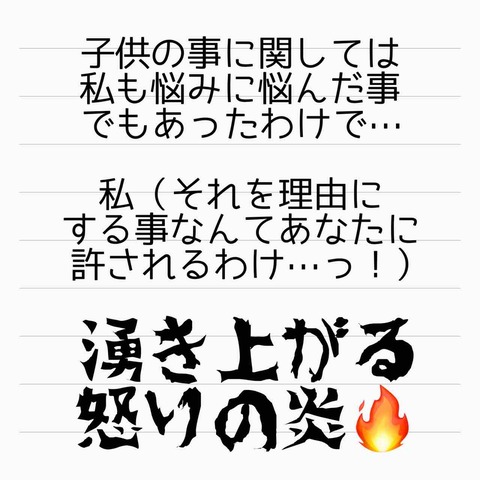 子供の事に関しては
私も悩みに悩んだ事
でもあったわけで…
私（それを理由に
する事なんてあなたに
許されるわけ…っ！）
湧き上がる
怒りの炎🔥